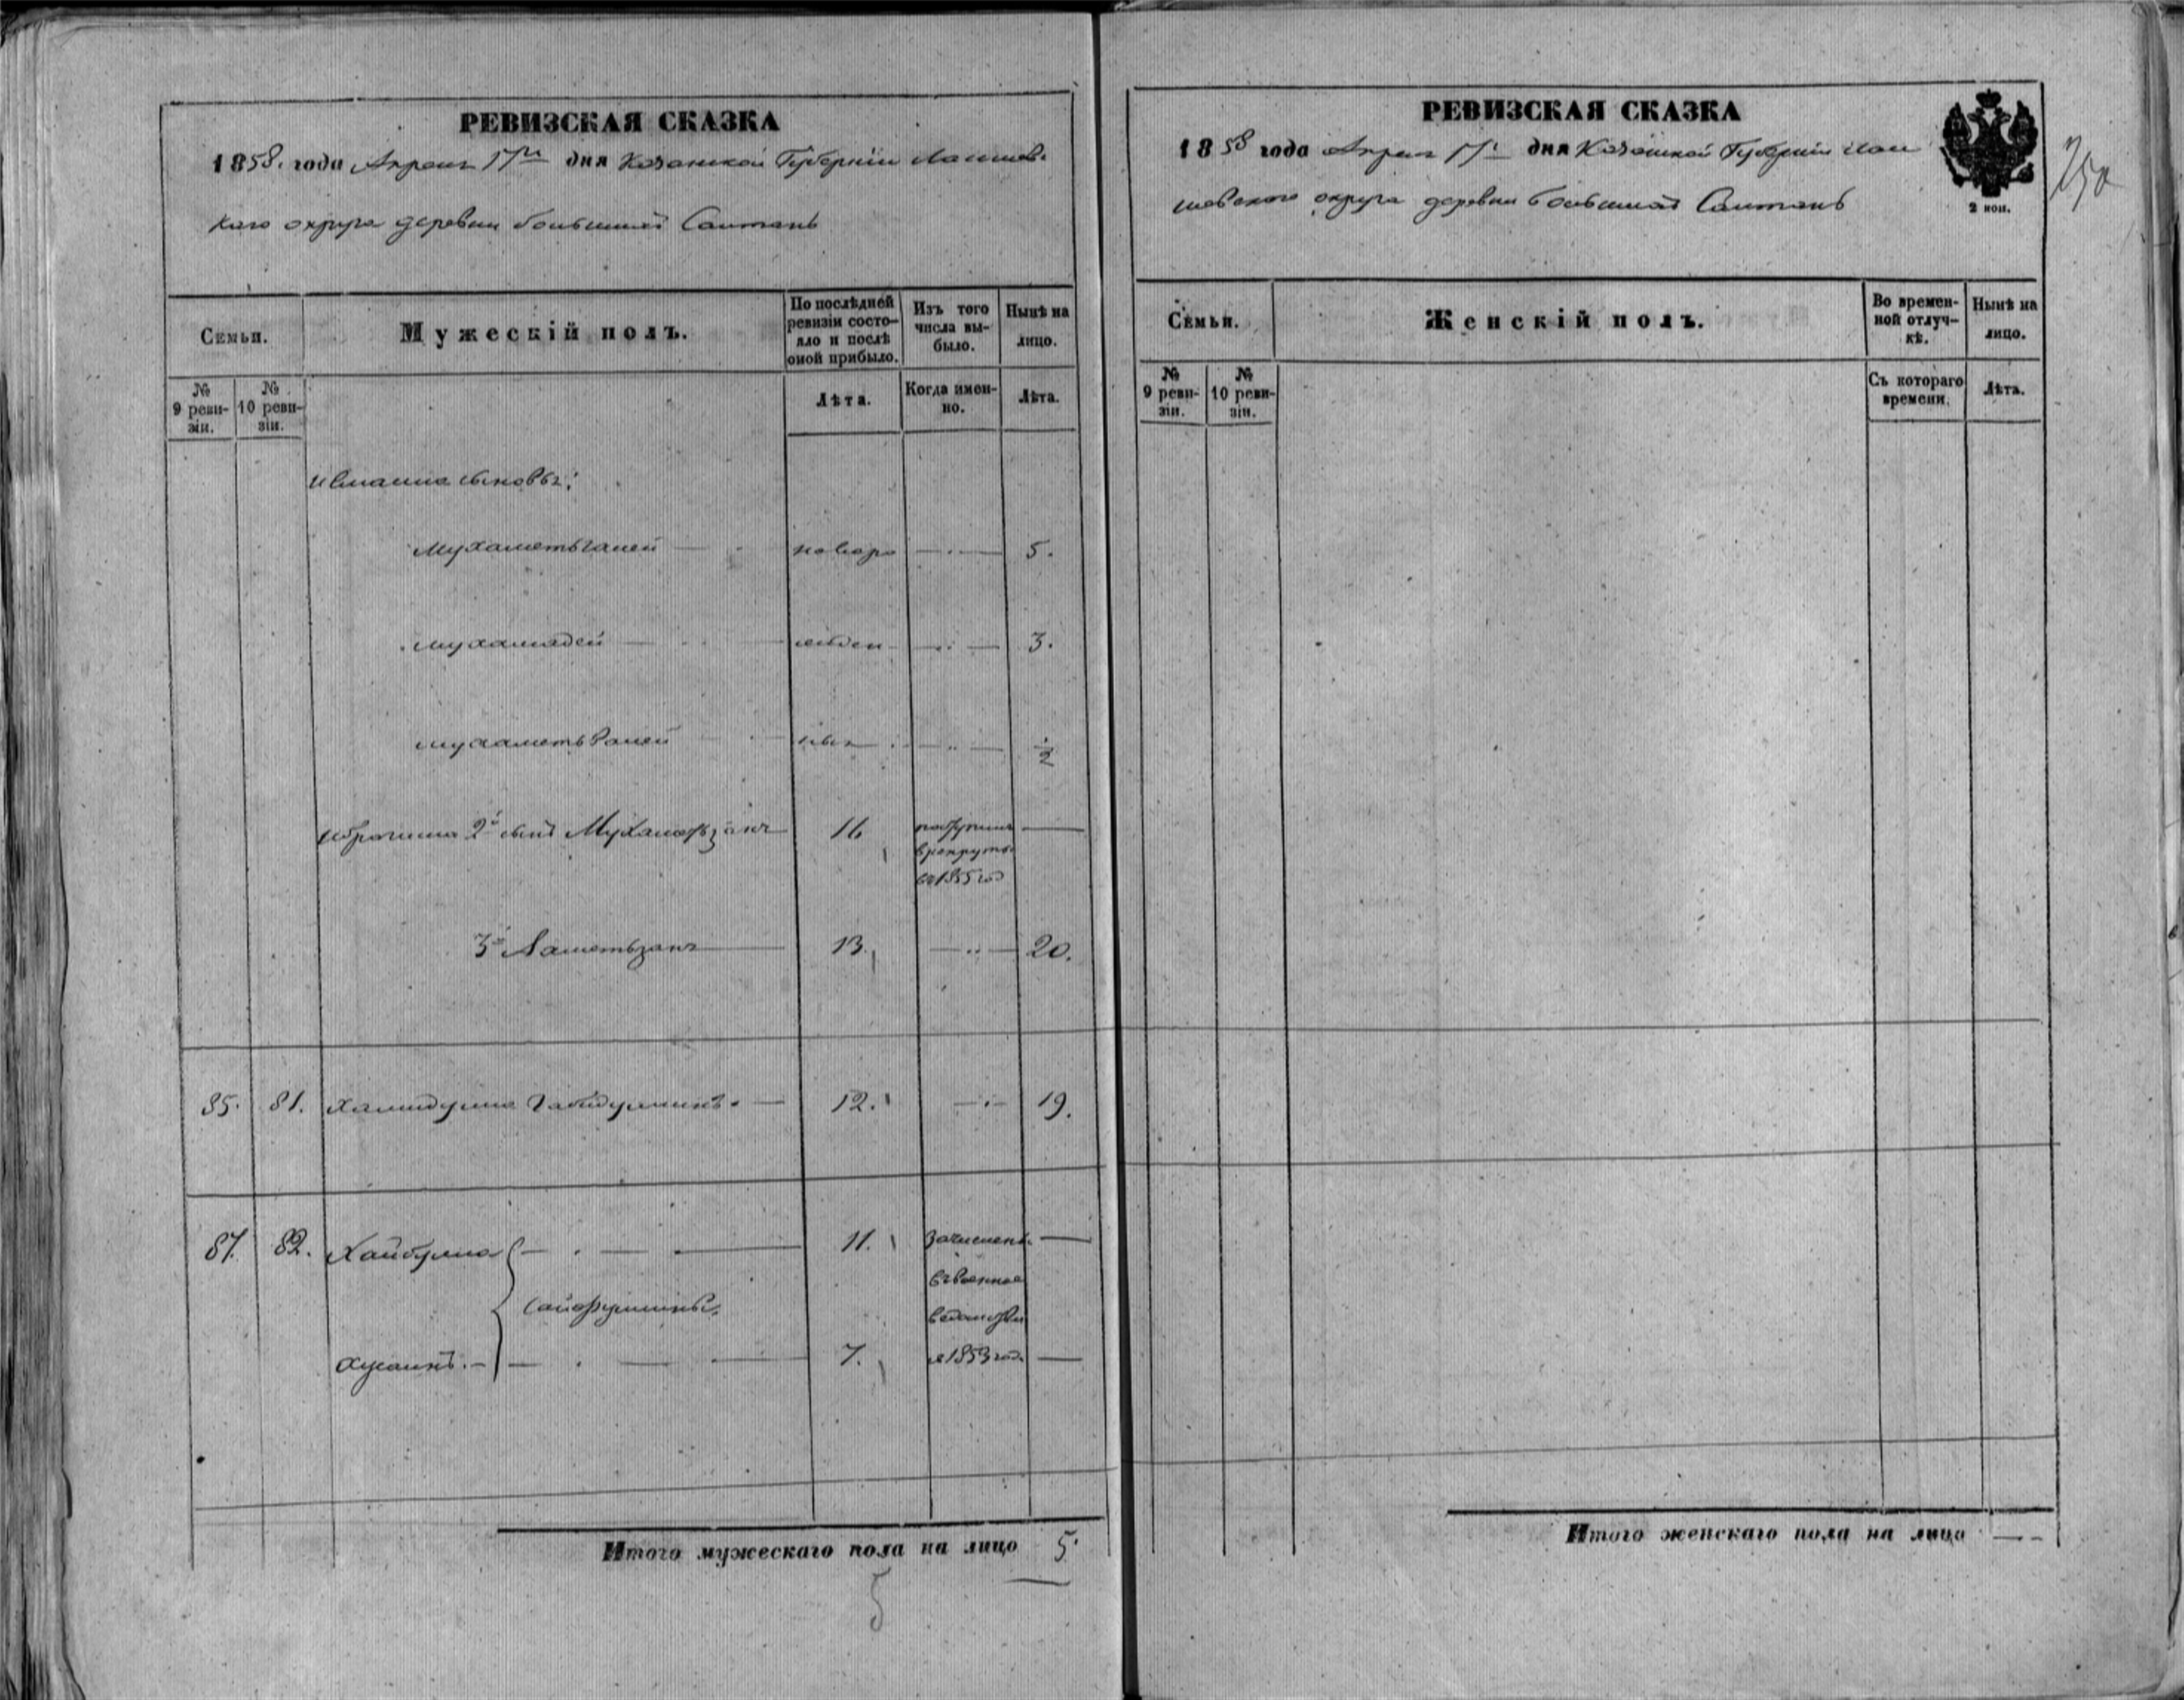 РЕВИЗСКАЯ СКАЗКА
1858. года Апреля 17го дня Казанской Губернии Лаишев-
каго округа деревни большихъ Салтанъ
Семьи.
Мужескій полъ.
По послѣдней ревизіи состо-
яло и послѣ оной прибыло.
Изъ того числа вы-
было.
Нынѣ на лицо.
№ 9 реви-
зіи.
№ 10 реви-
зіи.
Лѣта.
Когда имен-
но.
Лѣта.
сыновья:
Мухаметьганей новоро 5.
Мухамадей жден 3.
Мухаметьваней ные ½
Ибрагима 2й сынъ Мухаметзянъ 16 поступилъ
в рекруты
въ 1855 год
3й Ахметьзянъ 13. 20.
85. 81. Хамидулла Габидуллинъ 12. 19.
87. 82. Хайбулла 11. зачисленъ
въ военное
Сайфуллины ведомство
Хусаинъ 7. 1853 год.
Итого мужескаго пола на лицо 5.
5
РЕВИЗСКАЯ СКАЗКА
1858 года Апреля 17 дня Казанской Губернии Лаи
шевскаго округа деревни большихъ Салтанъ
2 коп.
250
Семьи.
Женскій полъ.
Во времен-
ной отлуч-
кѣ.
Нынѣ на лицо.
№ 9 реви-
зіи.
№ 10 реви-
зіи.
Съ котораго времени.
Лѣта.
Итого женскаго пола на лицо